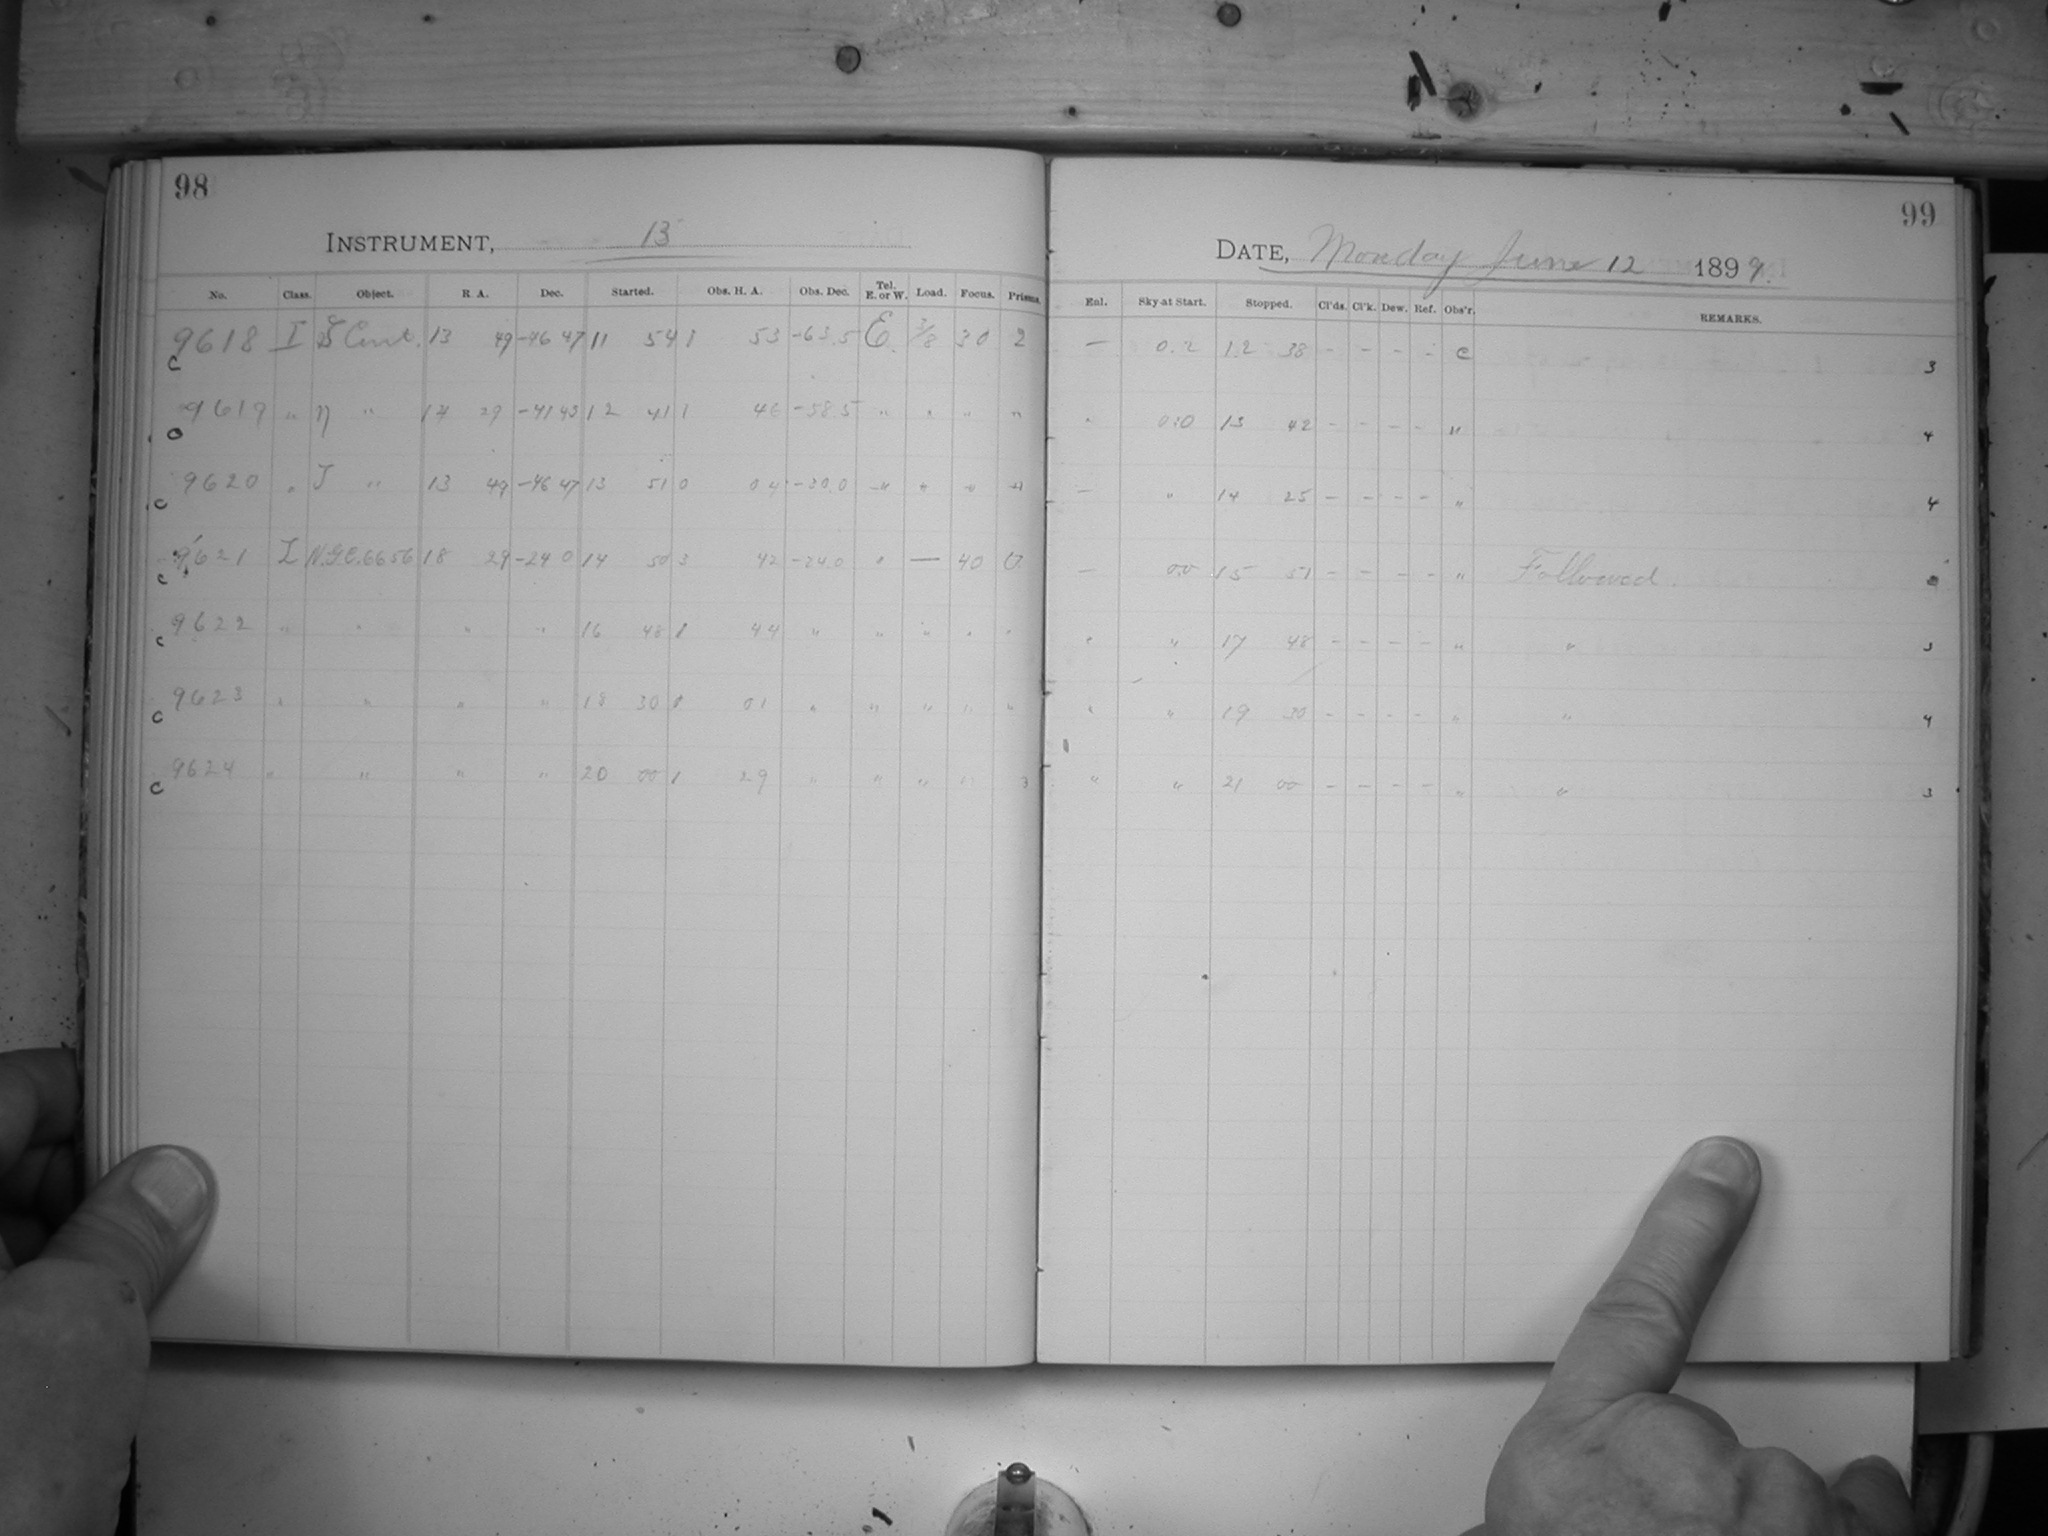 98
INSTRUMENT, 13
No. Class. Object. R. A. Dec. Started. Obs. H. A. Obs. Dec. Tel. E. or W. Load. Focus. Prisms.
9618 I Cent. 13 49 -46 47 11 54 1 53 -63.5 E. 3/8 30 2
c
9619 " η " 14 29 -41 43 12 41 1 46 -58.5 " " " "
o
9620 " " 13 49 -46 47 13 51 0 04 -30.0 " " " "
c
9621 I N.G.C. 6656 18 29 -24 0 14 50 3 42 -24.0 " — 40 0
c
9622 " " " " 16 48 1 44 " " " " "
c
9623 " " " " 18 30 0 01 " " " " "
c
9624 " " " " 20 00 1 29 " " " " "
c
99
DATE, Monday June 12 1899.
Enl. Sky at Start. Stopped. Cl'ds. Cl'k. Dew. Ref. Obs'r. REMARKS.
— 0.2 12 38 - - - - c 3
" 0.0 13 42 - - - - " 4
— " 14 25 - - - - " 4
— 00 15 51 - - - - " Followed.
" " 17 48 - - - - " " 3
" " 19 30 - - - - " " 4
" " 21 00 - - - - " " 3